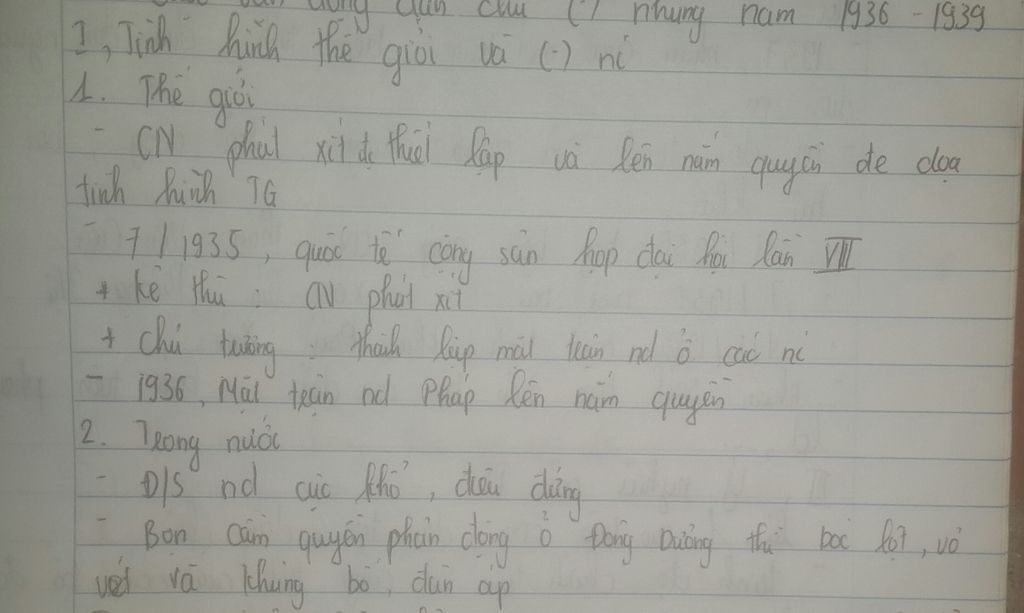 vận động dân chủ (·) những năm 1936 - 1939
I, Tình hình thế giới và (·) nc
1. Thế giới
- CN phát xít đc thiết lập và lên nắm quyền đe doạ
tình hình TG
- 7/1935, quốc tế cộng sản họp đại hội lần VII
+ kẻ thù : CN phát xít
+ chủ trương : thành lập mặt trận nd ở các nc
- 1936, Mặt trận nd Pháp lên nắm quyền
2. Trong nước
- Đ/S nd cực khổ, điêu đứng
- Bọn cầm quyền phản động ở Đông Dương thì bóc lột, vơ
vét và khủng bố, đàn áp